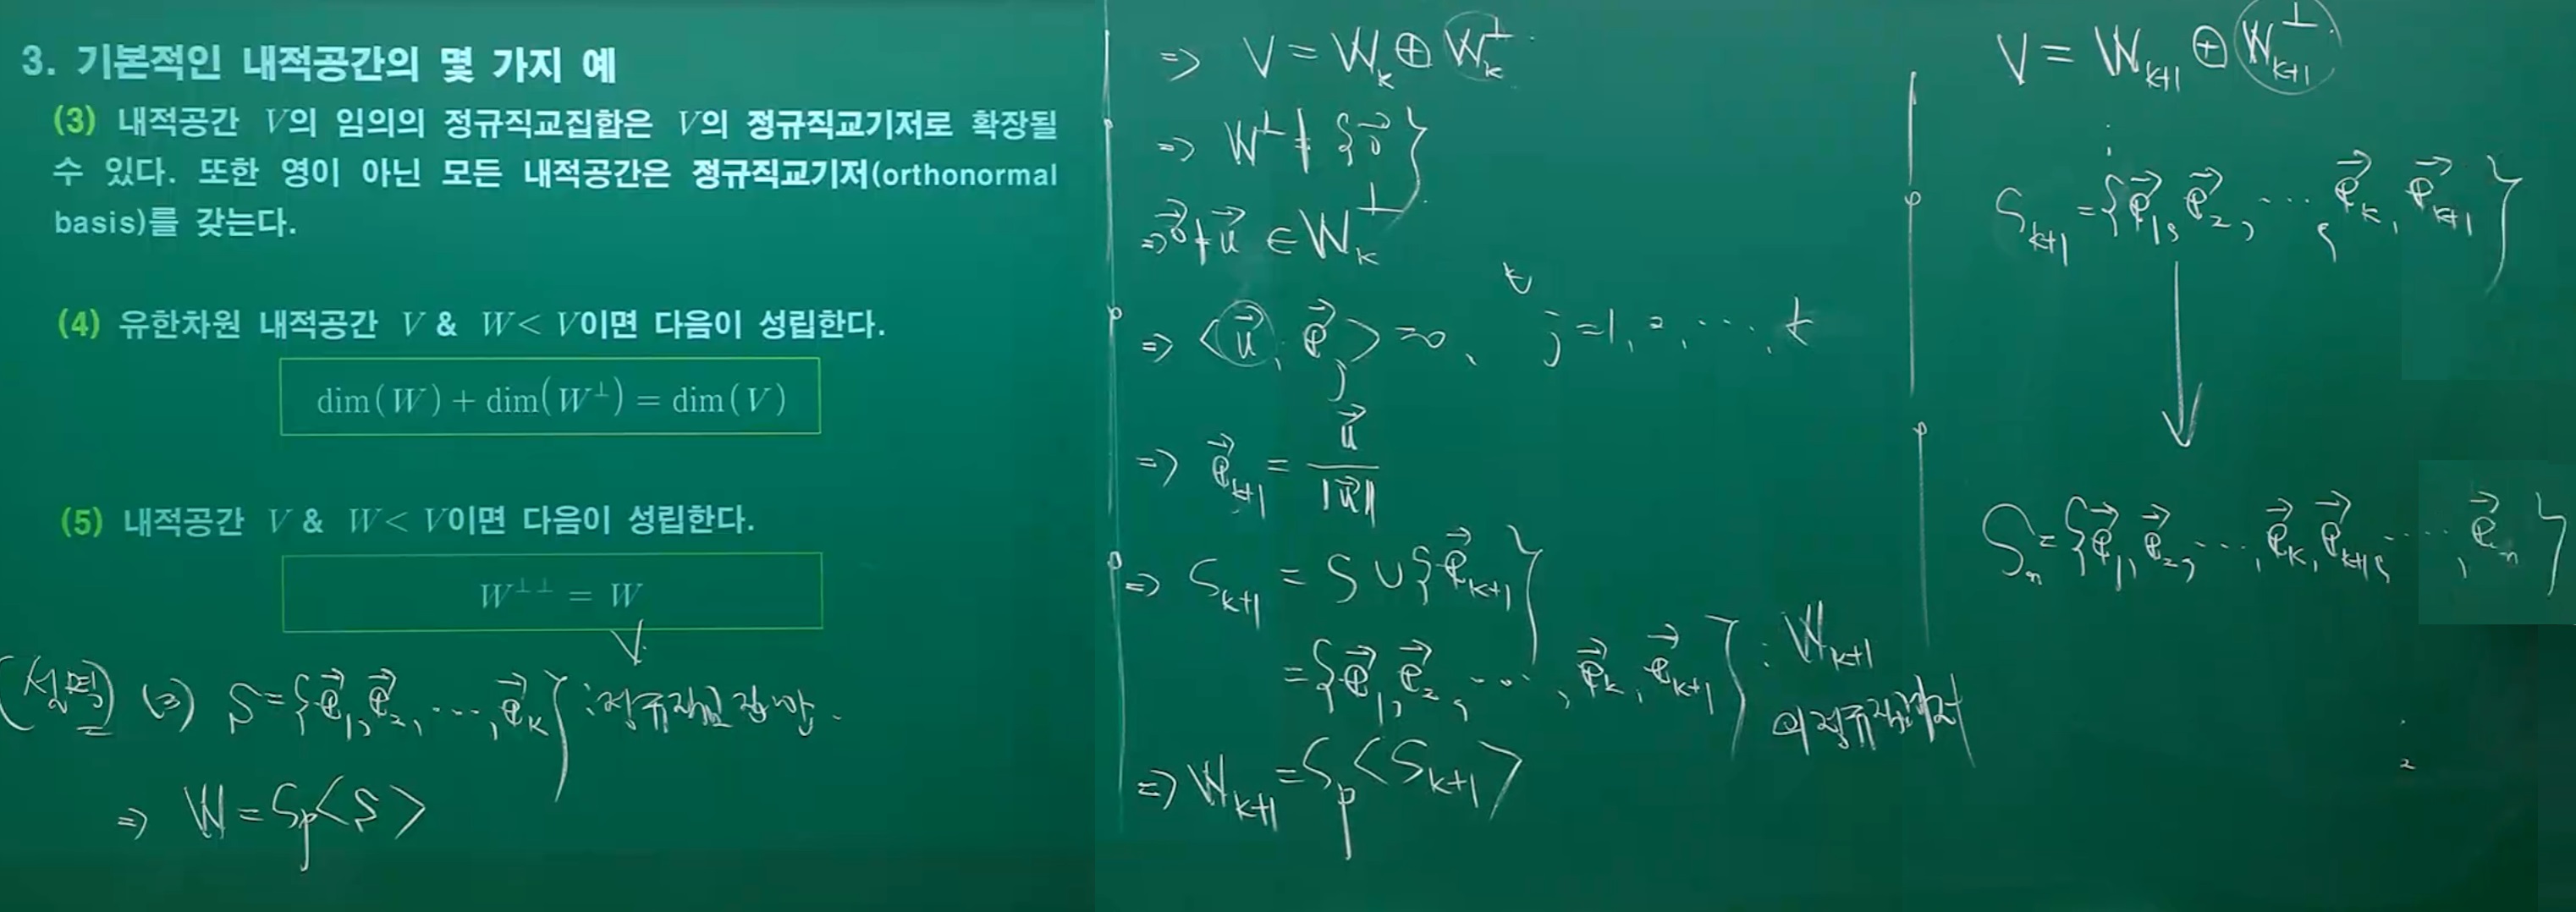 3. 기본적인 내적공간의 몇 가지 예
(3) 내적공간 V의 임의의 정규직교집합은 V의 정규직교기저로 확장될
수 있다. 또한 영이 아닌 모든 내적공간은 정규직교기저(orthonormal
basis)를 갖는다.
(4) 유한차원 내적공간 V & W < V이면 다음이 성립한다.
dim(W) + dim(W^⊥) = dim(V)
(5) 내적공간 V & W < V이면 다음이 성립한다.
W^⊥⊥ = W
V
(설명) (3) S = {e⃗_1, e⃗_2, ⋯, e⃗_k} : 정규직교집합.
⇒ W = Sp<S>
⇒ V = W_k ⊕ W_k^⊥.
⇒ W^⊥ ≠ {0⃗}
⇒ 0⃗ ≠ u⃗ ∈ W_k^⊥
⇒ <u⃗, e⃗_j> = 0, j = 1, 2, ⋯, k
⇒ e⃗_{k+1} = u⃗ / ‖u⃗‖
⇒ S_{k+1} = S ∪ {e⃗_{k+1}}
= {e⃗_1, e⃗_2, ⋯, e⃗_k, e⃗_{k+1}} : W_{k+1}
의 정규직교기저
⇒ W_{k+1} = Sp<S_{k+1}>
V = W_{k+1} ⊕ W_{k+1}^⊥.
⋮
S_{k+1} = {e⃗_1, e⃗_2, ⋯, e⃗_k, e⃗_{k+1}}
↓
S_n = {e⃗_1, e⃗_2, ⋯, e⃗_k, e⃗_{k+1}, ⋯, e⃗_n}